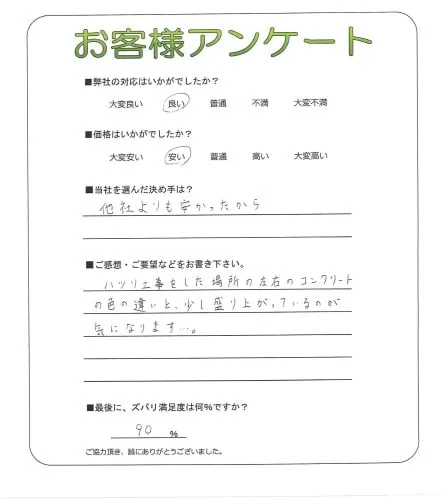 お客様アンケート
■弊社の対応はいかがでしたか?
大変良い 良い 普通 不満 大変不満
■価格はいかがでしたか?
大変安い 安い 普通 高い 大変高い
■当社を選んだ決め手は?
他社よりも安かったから
■ご感想・ご要望などをお書き下さい。
ハツリ工事をした場所の左右のコンクリート
の色の違いと、少し盛り上がっているのが
気になります…。
■最後に、ズバリ満足度は何%ですか?
90 %
ご協力頂き、誠にありがとうございました。